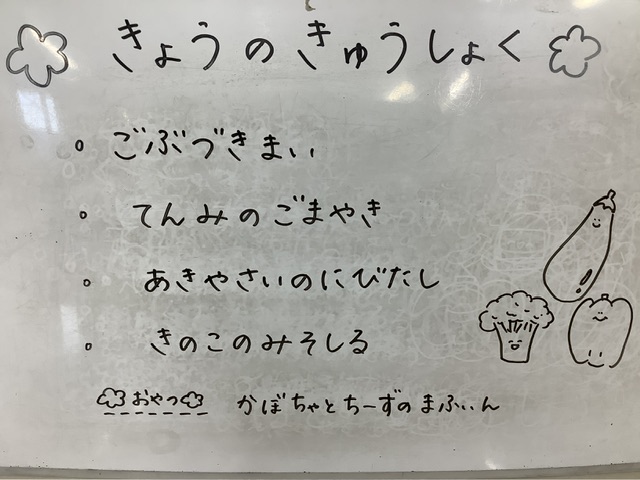 きょうのきゅうしょく
。ごぶづきまい
。てんみのごまやき
。あきやさいのにびたし
。きのこのみそしる
おやつ かぼちゃとちーずのまふぃん